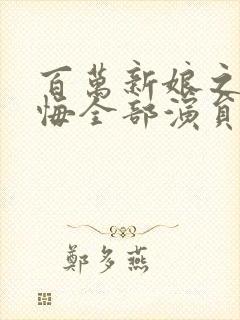 百萬新娘之
悔全部演員
鄭多燕